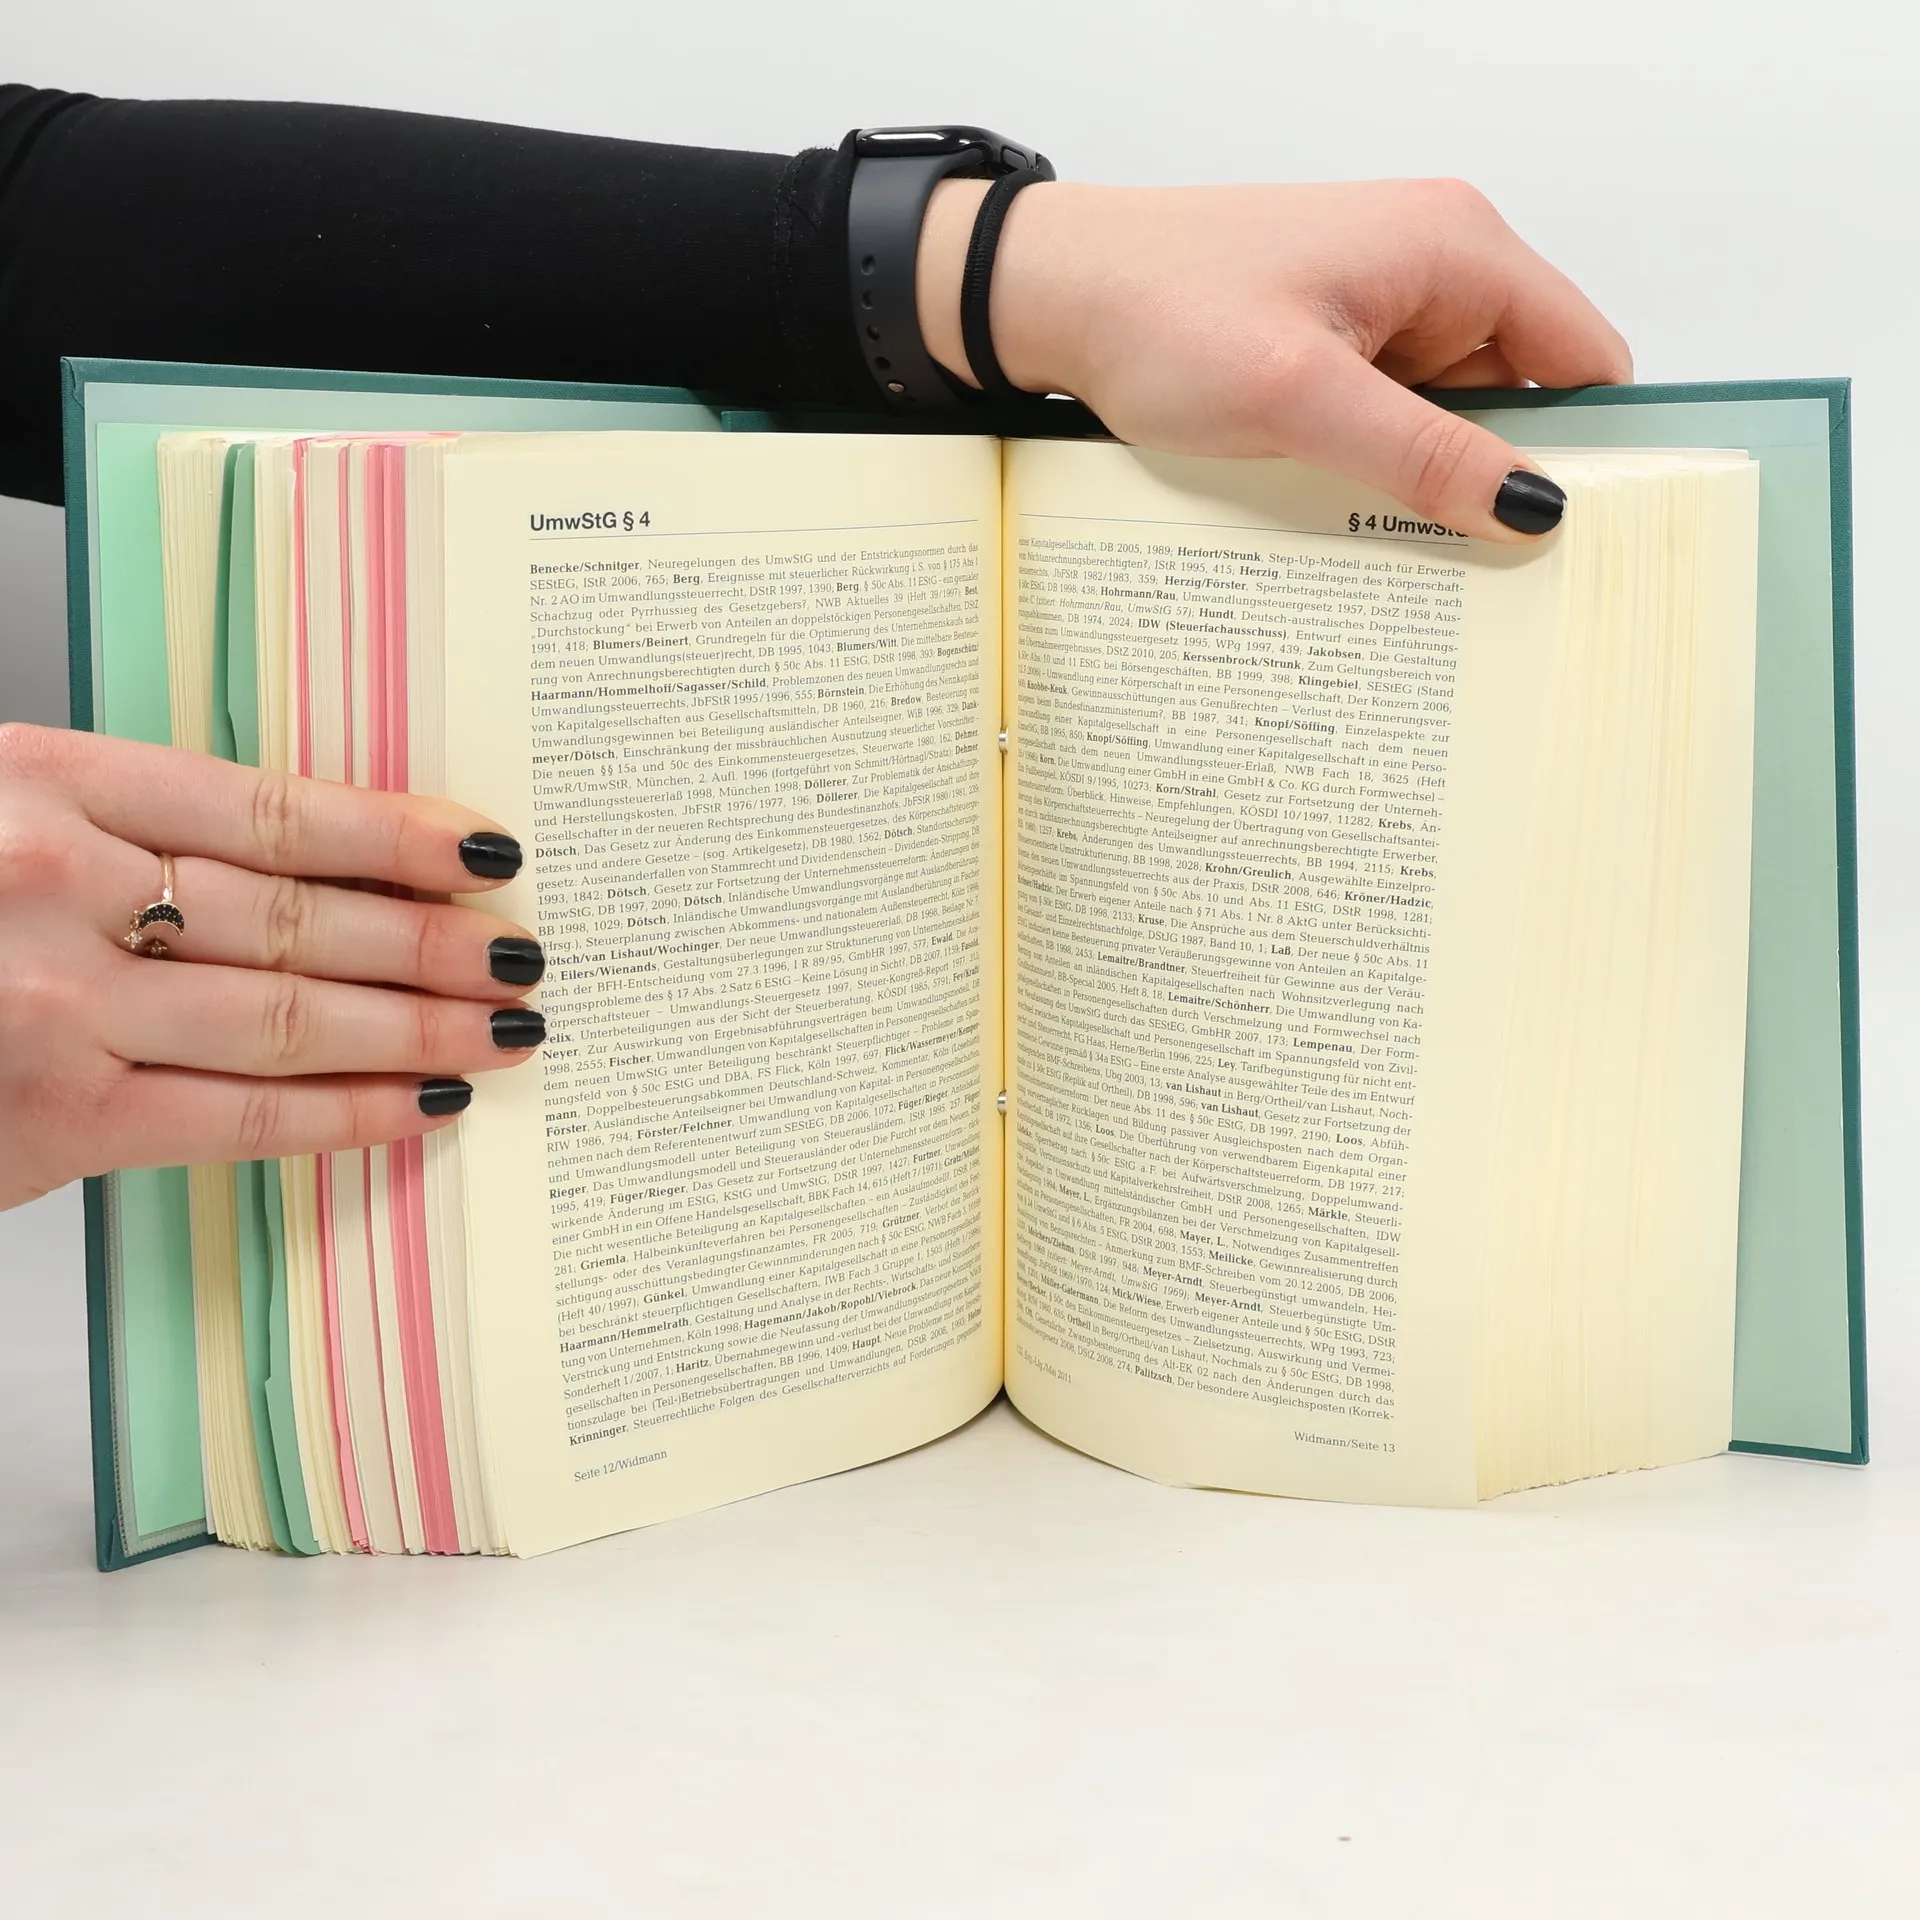 UmwStG § 4
Benecke/Schnitger, Neuregelungen des UmwStG und der Entstrickungsnormen durch das
SEStEG, IStR 2006, 765; Berg, Ereignisse mit steuerlicher Rückwirkung i.S. von § 175 Abs 1
Nr. 2 AO im Umwandlungssteuerrecht, DStR 1997, 1390; Berg, § 50c Abs. 11 EStG - ein genialer
Schachzug oder Pyrrhussieg des Gesetzgebers?, NWB Aktuelles 39 (Heft 39/1997); Best,
„Durchstockung“ bei Erwerb von Anteilen an doppelstöckigen Personengesellschaften, DStZ
1991, 418; Blumers/Beinert, Grundregeln für die Optimierung des Unternehmenskaufs nach
dem neuen Umwandlungs(steuer)recht, DB 1995, 1043; Blumers/Witt, Die mittelbare Besteue-
rung von Anrechnungsberechtigten durch § 50c Abs. 11 EStG, DStR 1998, 393; Bogenschütz/
Haarmann/Hommelhoff/Sagasser/Schild, Problemzonen des neuen Umwandlungsrechts und
Umwandlungssteuerrechts, JbFStR 1995/1996, 555; Börnstein, Die Erhöhung des Nennkapitals
von Kapitalgesellschaften aus Gesellschaftsmitteln, DB 1960, 216; Bredow, Besteuerung von
Umwandlungsgewinnen bei Beteiligung ausländischer Anteilseigner, WiB 1996, 329; Dank-
meyer/Dötsch, Einschränkung der missbräuchlichen Ausnutzung steuerlicher Vorschriften -
Die neuen §§ 15a und 50c des Einkommensteuergesetzes, Steuerwarte 1980, 162; Dehmer,
UmwR/UmwStR, München, 2. Aufl. 1996 (fortgeführt von Schmitt/Hörtnagl/Stratz); Dehmer,
Umwandlungssteuererlaß 1998, München 1998; Döllerer, Zur Problematik der Anschaffungs-
und Herstellungskosten, JbFStR 1976/1977, 196; Döllerer, Die Kapitalgesellschaft und ihre
Gesellschafter in der neueren Rechtsprechung des Bundesfinanzhofs, JbFStR 1980/1981, 239;
Dötsch, Das Gesetz zur Änderung des Einkommensteuergesetzes, des Körperschaftsteuerge-
setzes und andere Gesetze – (sog. Artikelgesetz), DB 1980, 1562; Dötsch, Standortsicherungs-
gesetz: Auseinanderfallen von Stammrecht und Dividendenschein – Dividenden-Stripping, DB
1993, 1842; Dötsch, Gesetz zur Fortsetzung der Unternehmenssteuerreform: Änderungen des
UmwStG, DB 1997, 2090; Dötsch, Inländische Umwandlungsvorgänge mit Auslandberührung,
BB 1998, 1029; Dötsch, Inländische Umwandlungsvorgänge mit Auslandberührung in Fischer
(Hrsg.), Steuerplanung zwischen Abkommens- und nationalem Außensteuerrecht, Köln 1998,
ötsch/van Lishaut/Wochinger, Der neue Umwandlungssteuererlaß, DB 1998, Beilage Nr. 7,
19; Eilers/Wienands, Gestaltungsüberlegungen zur Strukturierung von Unternehmenskäufen
nach der BFH-Entscheidung vom 27.3.1996, I R 89/95, GmbHR 1997, 577; Ewald, Die Aus-
legungsprobleme des § 17 Abs. 2 Satz 6 EStG – Keine Lösung in Sicht?, DB 2007, 1159; Fasold,
örperschaftsteuer – Umwandlungs-Steuergesetz 1997, Steuer-Kongreß-Report 1977, 313;
elix, Unterbeteiligungen aus der Sicht der Steuerberatung, KÖSDI 1985, 5791; Fey/Kraft/
Neyer, Zur Auswirkung von Ergebnisabführungsverträgen beim Umwandlungsmodell, DB
1998, 2555; Fischer, Umwandlungen von Kapitalgesellschaften in Personengesellschaften nach
dem neuen UmwStG unter Beteiligung beschränkt Steuerpflichtiger – Probleme im Span-
nungsfeld von § 50c EStG und DBA, FS Flick, Köln 1997, 697; Flick/Wassermeyer/Kemper-
mann, Doppelbesteuerungsabkommen Deutschland-Schweiz, Kommentar, Köln (Loseblatt);
Förster, Ausländische Anteilseigner bei Umwandlung von Kapital- in Personengesellschaften,
RIW 1986, 794; Förster/Felchner, Umwandlung von Kapitalgesellschaften in Personenunter-
nehmen nach dem Referentenentwurf zum SEStEG, DB 2006, 1072; Füger/Rieger, Anteilskauf
und Umwandlungsmodell unter Beteiligung von Steuerausländern, IStR 1995, 257; Füger/
Rieger, Das Umwandlungsmodell und Steuerausländer oder Die Furcht vor dem Neuen, IStR
1995, 419; Füger/Rieger, Das Gesetz zur Fortsetzung der Unternehmenssteuerreform – rück-
wirkende Änderung im EStG, KStG und UmwStG, DStR 1997, 1427; Furtner, Umwandlung
einer GmbH in ein Offene Handelsgesellschaft, BBK Fach 14, 615 (Heft 7/1971); Gratz/Müller,
Die nicht wesentliche Beteiligung an Kapitalgesellschaften – ein Auslaufmodell?, DStR 1996,
281; Griemla, Halbeinkünfteverfahren bei Personengesellschaften – Zuständigkeit des Fest-
stellungs- oder des Veranlagungsfinanzamtes, FR 2005, 719; Grützner, Verbot der Berück-
sichtigung ausschüttungsbedingter Gewinnminderungen nach § 50c EStG, NWB Fach 3, 10169
(Heft 40/1997); Günkel, Umwandlung einer Kapitalgesellschaft in eine Personengesellschaft
bei beschränkt steuerpflichtigen Gesellschaftern, IWB Fach 3 Gruppe 1, 1505 (Heft 1/1996);
Haarmann/Hemmelrath, Gestaltung und Analyse in der Rechts-, Wirtschafts- und Steuerbera-
tung von Unternehmen, Köln 1998; Hagemann/Jakob/Ropohl/Viebrock, Das neue Konzept der
Verstrickung und Entstrickung sowie die Neufassung der Umwandlungssteuergesetzes, NWB
Sonderheft 1/2007, 1; Haritz, Übernahmegewinn und -verlust bei der Umwandlung von Kapital-
gesellschaften in Personengesellschaften, BB 1996, 1409; Haupt, Neue Probleme mit der Investi-
tionszulage bei (Teil-)Betriebsübertragungen und Umwandlungen, DStR 2008, 1993;
Krinninger, Steuerrechtliche Folgen des Gesellschafterverzichts auf Forderungen gegenüber
Seite 12/Widmann
§ 4 UmwStG
einer Kapitalgesellschaft, DB 2005, 1989; Herfort/Strunk, Step-Up-Modell auch für Erwerbe
von Nichtanrechnungsberechtigten?, IStR 1995, 415; Herzig, Einzelfragen des Körperschaft-
steuerrechts, JbFStR 1982/1983, 359; Herzig/Förster, Sperrbetragsbelastete Anteile nach
§ 50c EStG, DB 1998, 438; Hohmann/Rau, Umwandlungssteuergesetz 1957, DStZ 1958 Aus-
gabe C (zitiert: Hohrmann/Rau, UmwStG 57); Hundt, Deutsch-australisches Doppelbesteue-
rungsabkommen, DB 1974, 2024; IDW (Steuerfachausschuss), Entwurf eines Einführungs-
schreibens zum Umwandlungssteuergesetz 1995, WPg 1997, 439; Jakobsen, Die Gestaltung
des Übernahmeergebnisses, DStZ 2010, 205; Kerssenbrock/Strunk, Zum Geltungsbereich von
§ 50c Abs. 10 und 11 EStG bei Börsengeschäften, BB 1999, 398; Klingebiel, SEStEG (Stand
12.7.2006) – Umwandlung einer Körperschaft in eine Personengesellschaft, Der Konzern 2006,
600; Knobbe-Keuk, Gewinnausschüttungen aus Genußrechten – Verlust des Erinnerungsver-
mögens beim Bundesfinanzministerium?, BB 1987, 341; Knopf/Söffing, Einzelaspekte zur
Umwandlung einer Kapitalgesellschaft in eine Personengesellschaft nach dem neuen
UmwStG, BB 1995, 850; Knopf/Söffing, Umwandlung einer Kapitalgesellschaft in eine Perso-
nengesellschaft nach dem neuen Umwandlungssteuer-Erlaß, NWB Fach 18, 3625 (Heft
Korn, Die Umwandlung einer GmbH in eine GmbH & Co. KG durch Formwechsel –
Ein Fallbeispiel, KÖSDI 9/1995, 10273; Korn/Strahl, Gesetz zur Fortsetzung der Unterneh-
menssteuerreform: Überblick, Hinweise, Empfehlungen, KÖSDI 10/1997, 11282; Krebs, Än-
derung des Körperschaftsteuerrechts – Neuregelung der Übertragung von Gesellschaftsantei-
len durch nichtanrechnungsberechtigte Anteilseigner auf anrechnungsberechtigte Erwerber,
BB 1980, 1257; Krebs, Änderungen des Umwandlungssteuerrechts, BB 1994, 2115; Krebs,
orientierte Umstrukturierung, BB 1998, 2028; Krohn/Greulich, Ausgewählte Einzelpro-
bleme des neuen Umwandlungssteuerrechts aus der Praxis, DStR 2008, 646; Kröner/Hadzic,
geschäfte im Spannungsfeld von § 50c Abs. 10 und Abs. 11 EStG, DStR 1998, 1281;
Kröner/Hadzic, Der Erwerb eigener Anteile nach § 71 Abs. 1 Nr. 8 AktG unter Berücksichti-
gung von § 50c EStG, DB 1998, 2133; Kruse, Die Ansprüche aus dem Steuerschuldverhältnis
bei Gesamt- und Einzelrechtsnachfolge, DStJG 1987, Band 10, 1; Laß, Der neue § 50c Abs. 11
EStG reduziert keine Besteuerung privater Veräußerungsgewinne von Anteilen an Kapitalge-
sellschaften, BB 1998, 2453; Lemaitre/Brandtner, Steuerfreiheit für Gewinne aus der Veräu-
ßerung von Anteilen an inländischen Kapitalgesellschaften nach Wohnsitzverlegung nach
Großbritannien?, BB-Special 2005, Heft 8, 18; Lemaitre/Schönherr, Die Umwandlung von Ka-
pitalgesellschaften in Personengesellschaften durch Verschmelzung und Formwechsel nach
der Neufassung des UmwStG durch das SEStEG, GmbHR 2007, 173; Lempenau, Der Form-
wechsel zwischen Kapitalgesellschaft und Personengesellschaft im Spannungsfeld von Zivil-
recht und Steuerrecht, FG Haas, Herne/Berlin 1996, 225; Ley, Tarifbegünstigung für nicht ent-
nommene Gewinne gemäß § 34a EStG – Eine erste Analyse ausgewählter Teile des im Entwurf
vorliegenden BMF-Schreibens, Ubg 2003, 13; van Lishaut in Berg/Ortheil/van Lishaut, Noch-
mals zu § 50c EStG (Replik auf Ortheil), DB 1998, 596; van Lishaut, Gesetz zur Fortsetzung der
Unternehmenssteuerreform: Der neue Abs. 11 des § 50c EStG, DB 1997, 2190; Loos, Abfüh-
rung vorvertraglicher Rücklagen und Bildung passiver Ausgleichsposten nach dem Organ-
schafterlaß, DB 1972, 1356; Loos, Die Überführung von verwendbarem Eigenkapital einer
Kapitalgesellschaft auf ihre Gesellschafter nach der Körperschaftsteuerreform, DB 1977, 217;
Sperrbetrag nach § 50c EStG a.F. bei Aufwärtsverschmelzung, Doppelumwand-
Vertrauensschutz und Kapitalverkehrsfreiheit, DStR 2008, 1265; Märkle, Steuerli-
che Aspekte in Umwandlung mittelständischer GmbH und Personengesellschaften, IDW
Fachtagung 1994; Mayer, L., Ergänzungsbilanzen bei der Verschmelzung von Kapitalgesell-
schaften in Personengesellschaften, FR 2004, 698; Mayer, L., Notwendiges Zusammentreffen
von § 14 UmwStG und § 6 Abs. 5 EStG, DStR 2003, 1553; Meilicke, Gewinnrealisierung durch
Ausübung von Bezugsrechten – Anmerkung zum BMF-Schreiben vom 20.12.2005, DB 2006,
DStR 1997, 948; Meyer-Arndt, Steuerbegünstigt umwandeln, Hei-
delberg 1969 (zitiert: Meyer-Arndt, UmwStG 1969); Meyer-Arndt, Steuerbegünstigte Um-
wandlung, JbFStR 1969/1970, 124; Mick/Wiese, Erwerb eigener Anteile und § 50c EStG, DStR
Müller-Gatermann, Die Reform des Umwandlungssteuerrechts, WPg 1993, 723;
§ 50c des Einkommensteuergesetzes – Zielsetzung, Auswirkung und Vermei-
Ortheil in Berg/Ortheil/van Lishaut, Nochmals zu § 50c EStG, DB 1998,
Gesetzliche Zwangsbesteuerung des Alt-EK 02 nach den Änderungen durch das
2008, DStZ 2008, 274; Palitzsch, Der besondere Ausgleichsposten (Korrek-
Erg.-Lfg./Mai 2011
Widmann/Seite 13